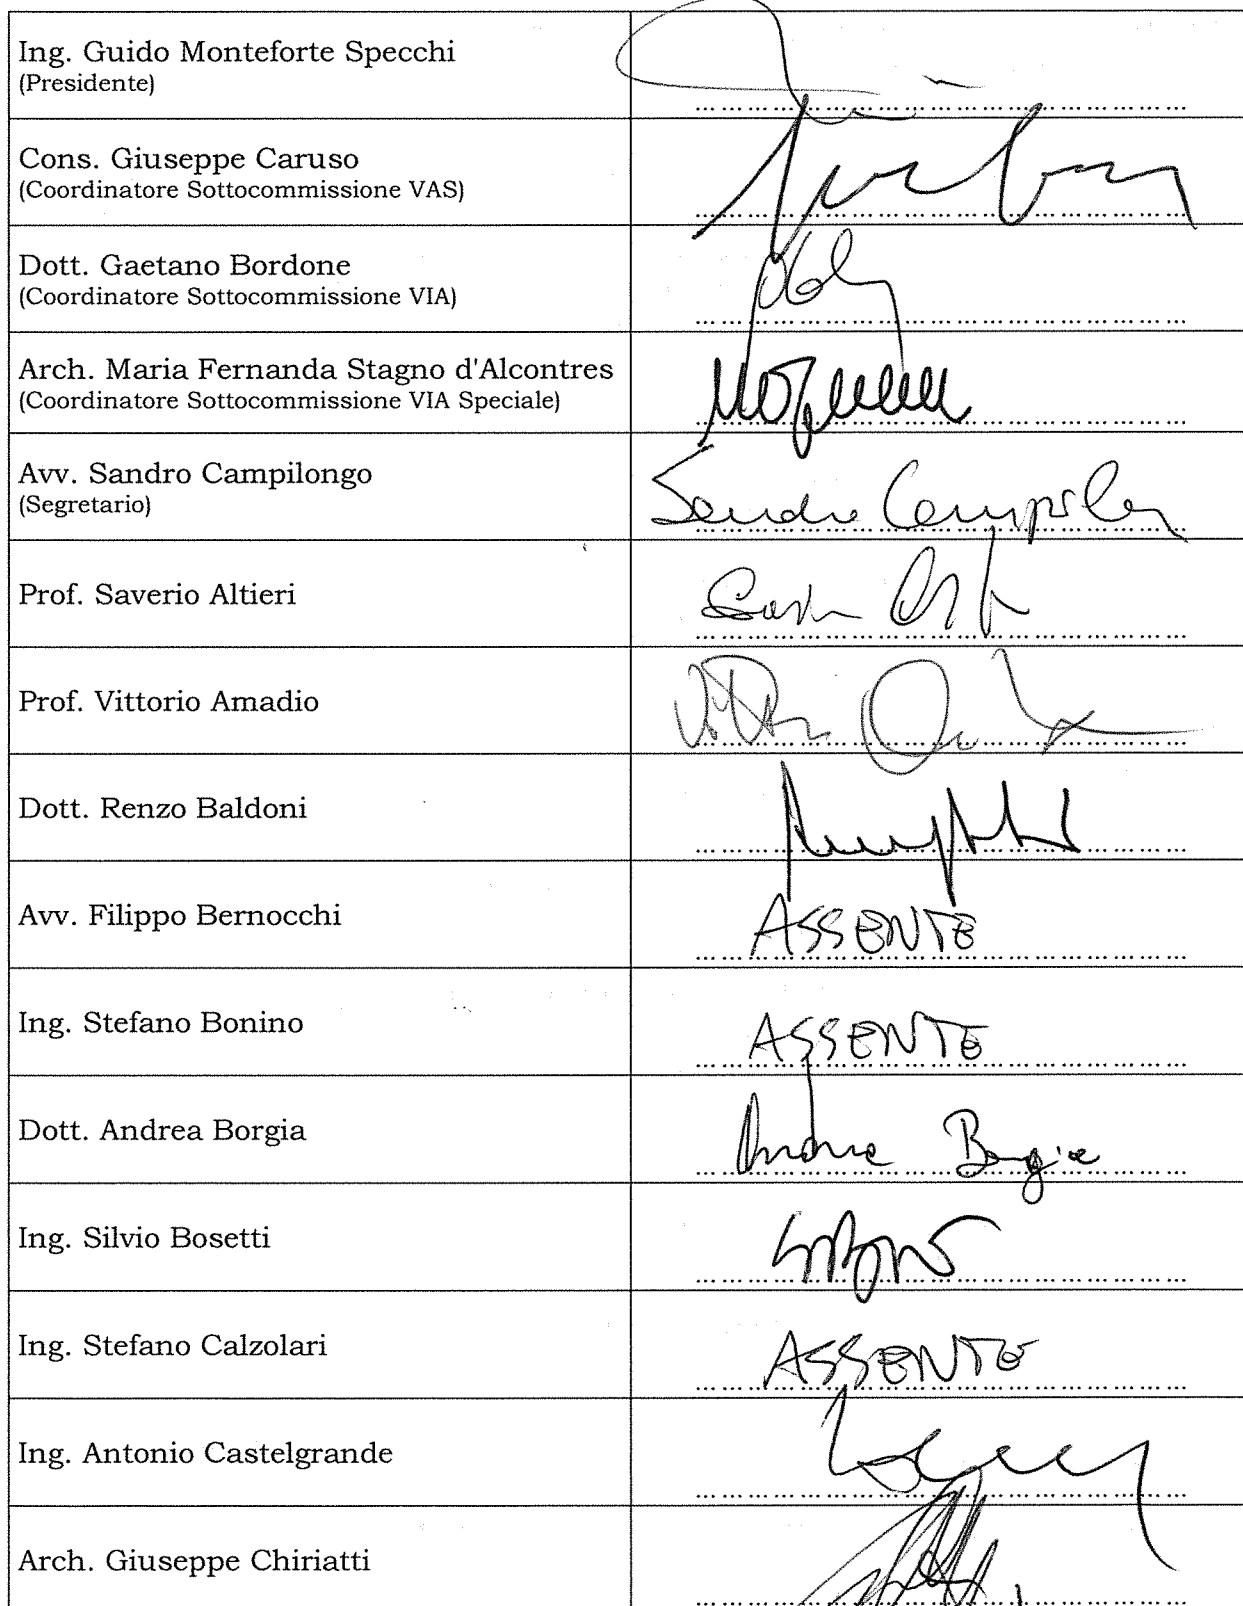 Ing. Guido Monteforte Specchi
(Presidente)
Cons. Giuseppe Caruso
(Coordinatore Sottocommissione VAS)
Dott. Gaetano Bordone
(Coordinatore Sottocommissione VIA)
Arch. Maria Fernanda Stagno d'Alcontres
(Coordinatore Sottocommissione VIA Speciale)
Avv. Sandro Campilongo
(Segretario)
Prof. Saverio Altieri
Prof. Vittorio Amadio
Dott. Renzo Baldoni
Avv. Filippo Bernocchi
ASSENTE
Ing. Stefano Bonino
ASSENTE
Dott. Andrea Borgia
Andrea Borgia
Ing. Silvio Bosetti
Ing. Stefano Calzolari
ASSENTE
Ing. Antonio Castelgrande
Arch. Giuseppe Chiriatti